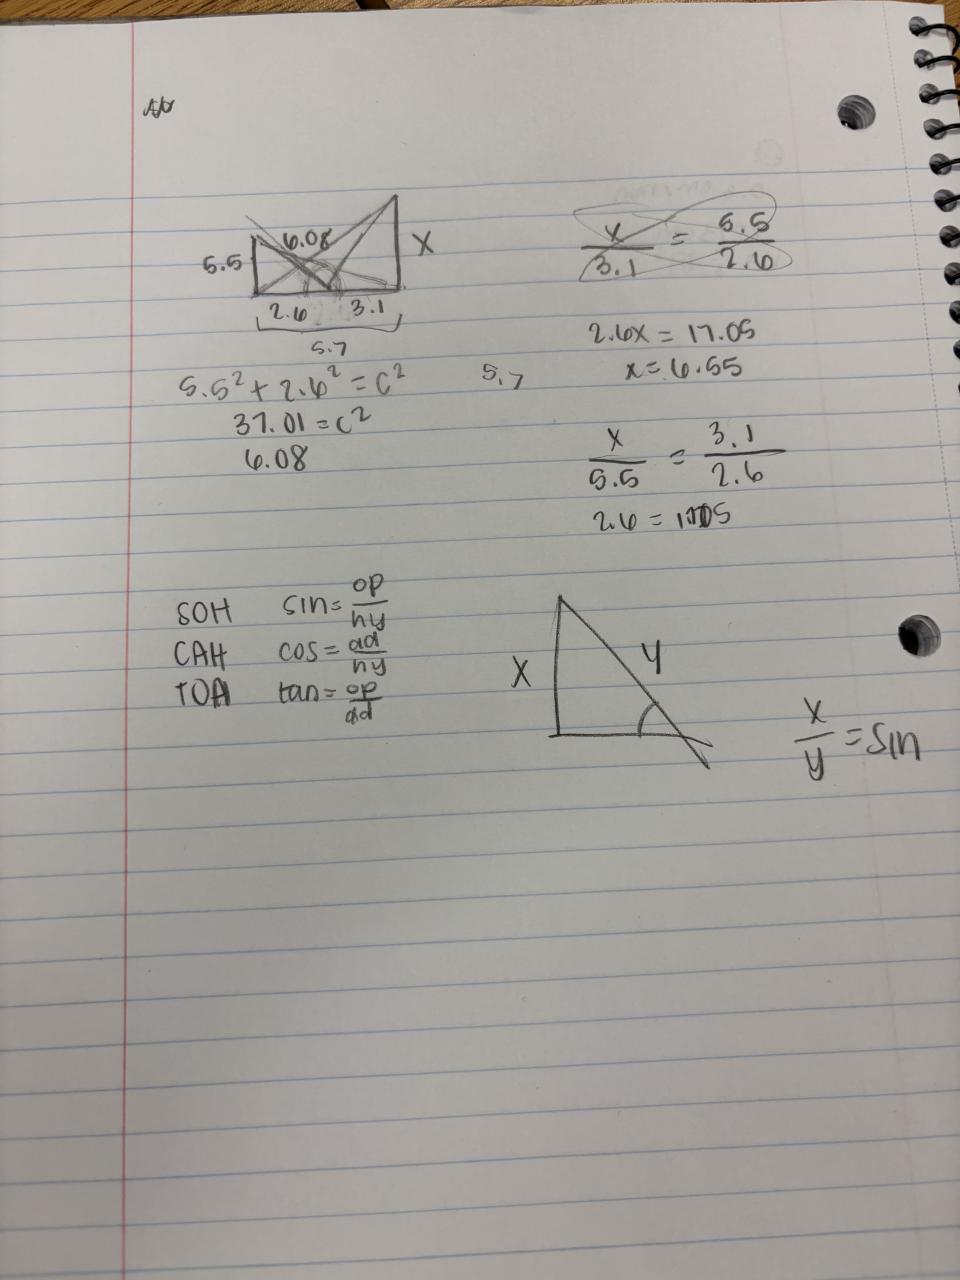 6.08
5.5
X
2.6 3.1
5.7
5.5² + 2.6² = C²
37.01 = C²
6.08
5.7
x/3.1 = 5.5/2.6
2.6x = 17.05
x = 6.55
x/5.5 = 3.1/2.6
2.6 = 17.05
SOH sin = op/hy
CAH cos = ad/hy
TOA tan = op/ad
X
y
x/y = sin